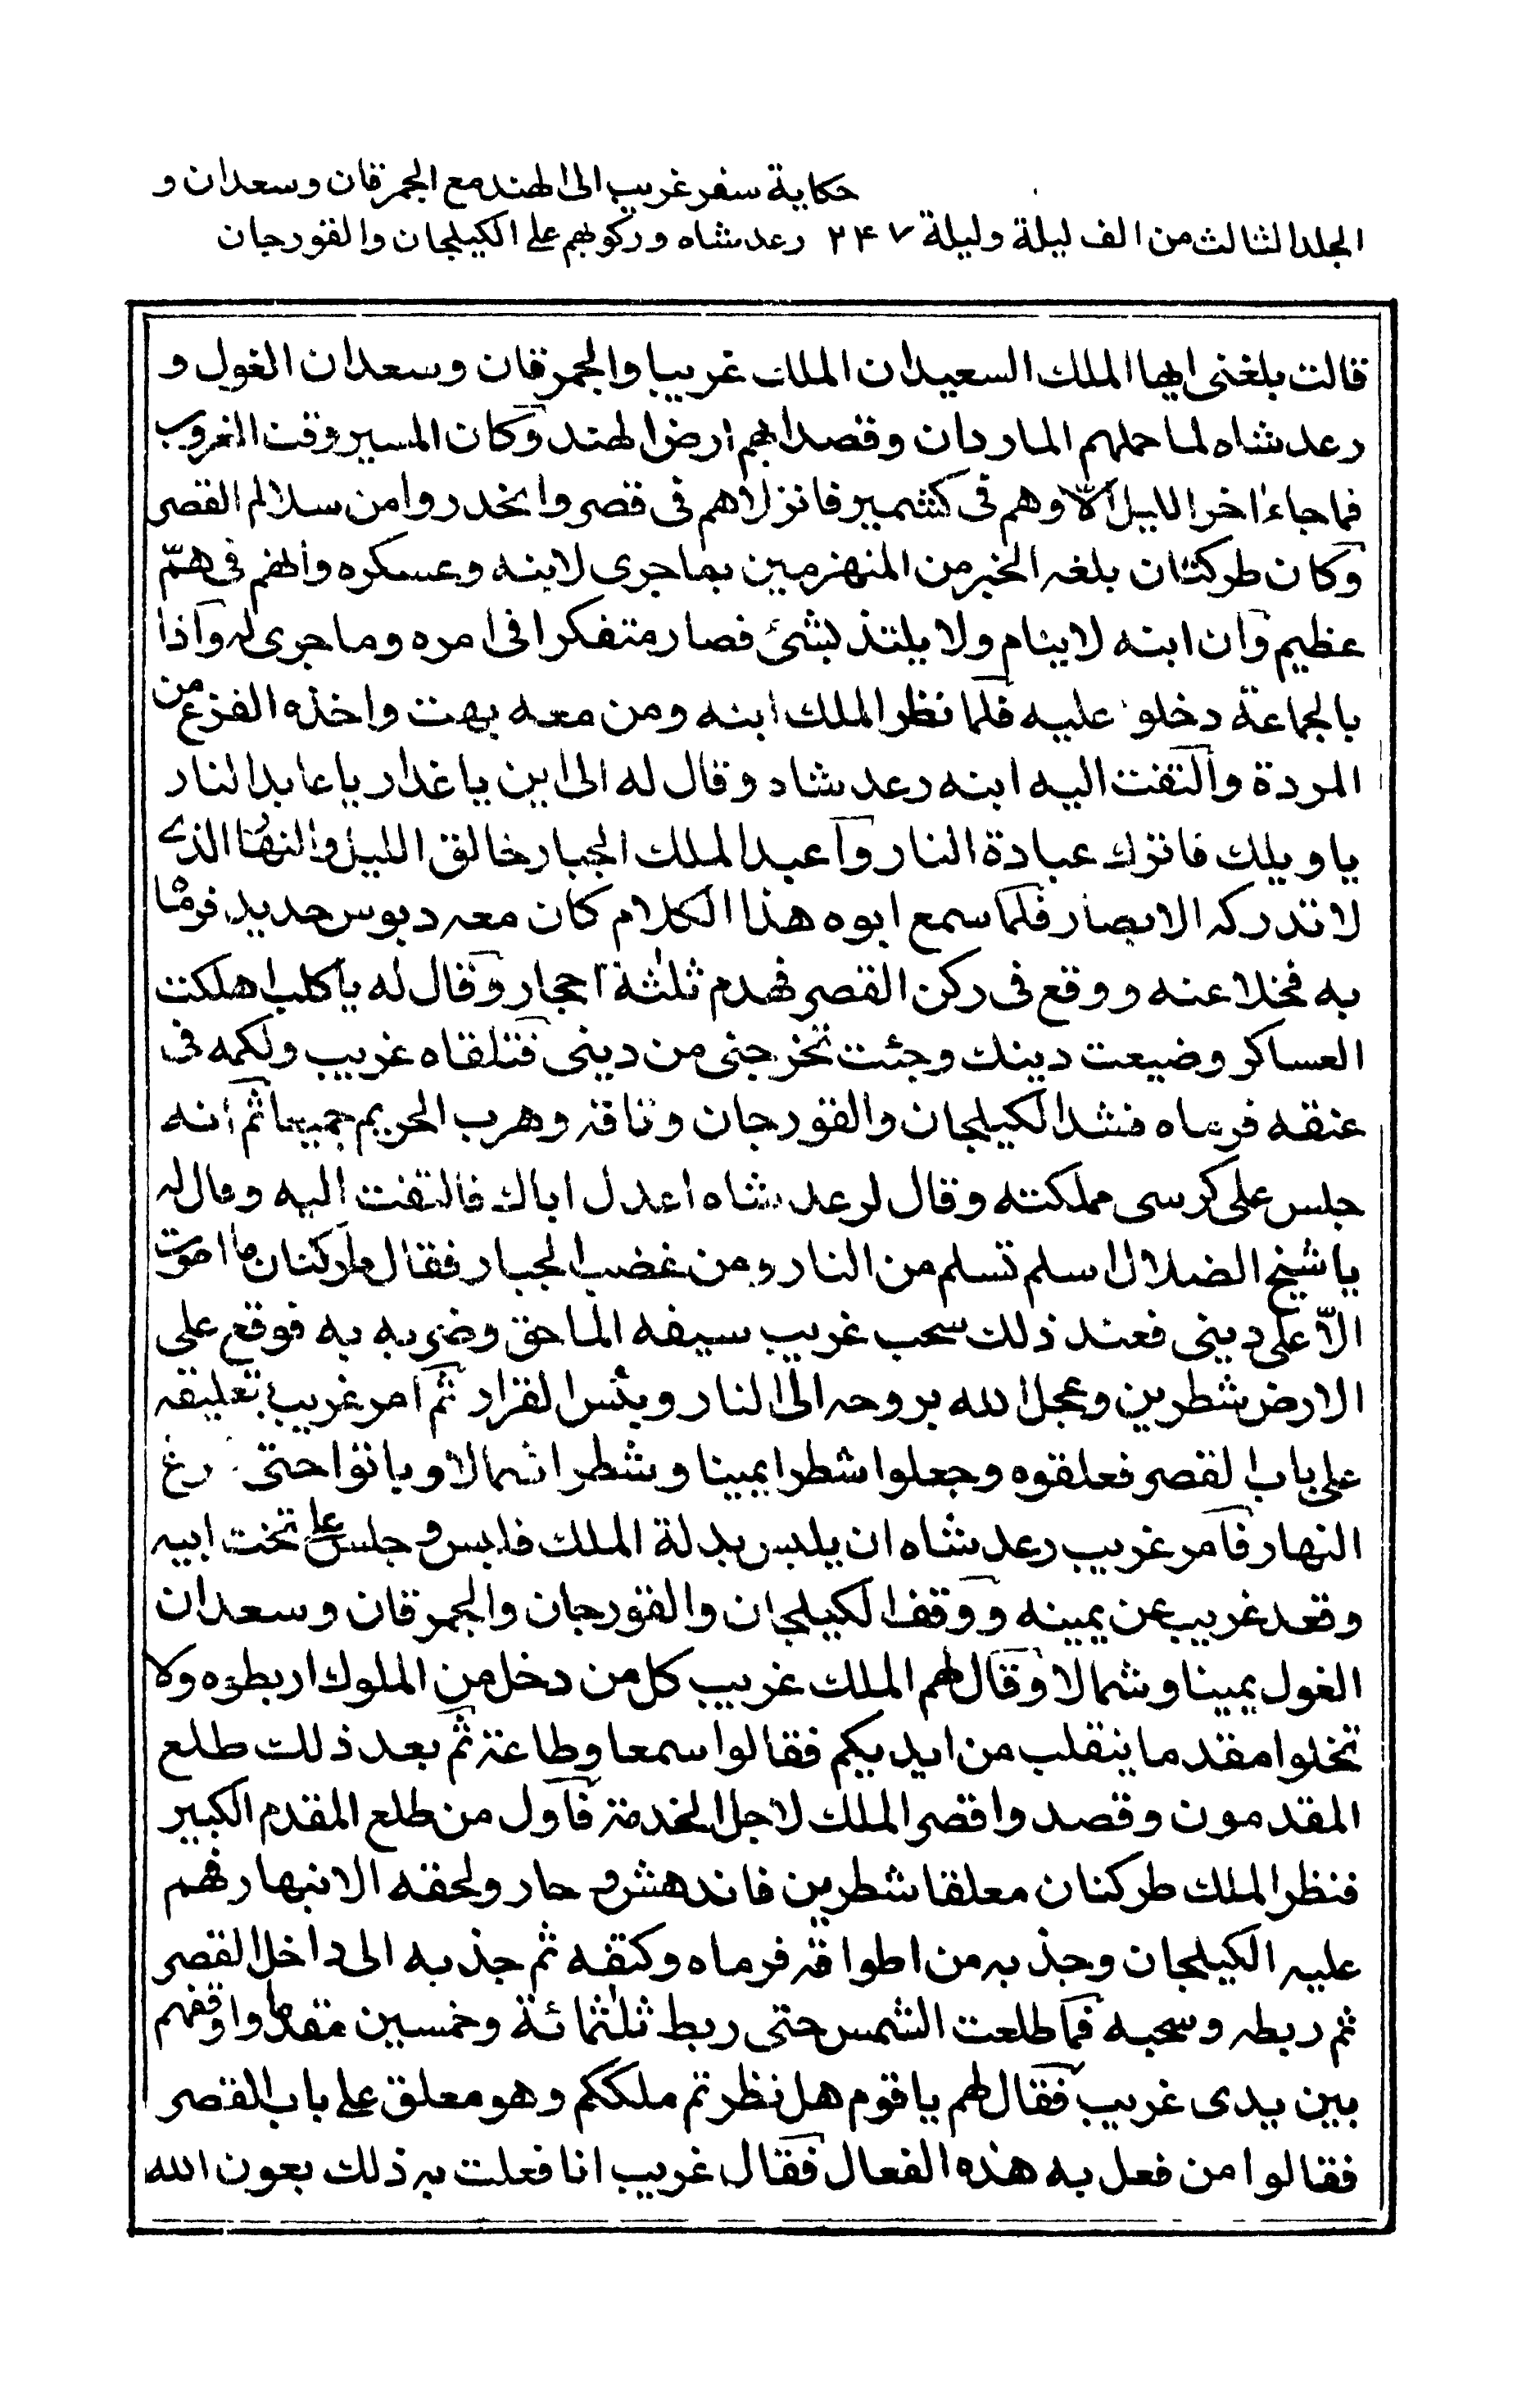 حكاية سفر غريب الى الهند مع الجمرقان وسعدان و
الجلد الثالث من الف ليلة وليلة ٢٤٧ رعد شاه وركوبهم على الكيلجان والقورجان
قالت بلغنى ايها الملك السعيد ان الملك غريبا والجمرقان وسعدان الغول و
رعد شاه لما حملهم الماردان وقصدا بهم ارض الهند وكان المسير وقت الغروب
فما جاء اخر الليل الّا وهم فى كشمير فانزلاهم فى قصر وانحدروا من سلالم القصر
وكان طركنان بلغه الخبر من المنهزمين بما جرى لابنه وعسكره وانهم فى همّ
عظيم وان ابنه لا ينام ولا يلتذ بشئ فصار متفكرا فى امره وما جرى له واذا
بالجماعة دخلوا عليه فلما نظر الملك ابنه ومن معه بهت واخذه الفزع من
المردة والتفت اليه ابنه رعد شاه وقال له الى اين يا غدار يا عابد النار
يا ويلك فاترك عبادة النار واعبد الملك الجبار خالق الليل والنهار الذى
لا تدركه الابصار فلما سمع ابوه هذا الكلام كان معه دبوس حديد فرماه
به فخلا عنه ووقع فى ركن القصر فهدم ثلثة احجار وقال له يا كلب اهلكت
العساكر وضيعت دينك وجئت تخرجنى من دينى فتلقاه غريب ولكمه فى
عنقه فرماه فشد الكيلجان والقورجان وثاقه وهرب الحريم جميعا ثم انه
جلس على كرسى مملكته وقال لرعد شاه اعدل اباك فالتفت اليه وقال له
يا شيخ الضلال اسلم تسلم من النار ومن غضب الجبار فقال طركنان ما اموت
الّا على دينى فعند ذلك سحب غريب سيفه الماحق وضربه به فوقع على
الارض شطرين وعجل الله بروحه الى النار وبئس القرار ثم امر غريب بتعليقه
على باب القصر فعلقوه وجعلوا شطرا يمينا وشطرا شمالا وباتوا حتى فرغ
النهار فامر غريب رعد شاه ان يلبس بدلة الملك فلبس وجلس على تخت ابيه
وقعد غريب عن يمينه ووقف الكيلجان والقورجان والجمرقان وسعدان
الغول يمينا وشمالا وقال لهم الملك غريب كل من دخل من الملوك اربطوه ولا
تخلوا مقدما ينقلب من ايديكم فقالوا سمعا وطاعة ثم بعد ذلك طلع
المقدمون وقصدوا قصر الملك لاجل الخدمة فاول من طلع المقدم الكبير
فنظر الملك طركنان معلقا شطرين فاندهش وحار ولحقه الانبهار فهم
عليه الكيلجان وجذبه من اطواقه فرماه وكتفه ثم جذبه الى داخل القصر
ثم ربطه وسحبه فما طلعت الشمس حتى ربط ثلثمائة وخمسين مقدما واوقفهم
بين يدى غريب فقال لهم يا قوم هل نظرتم ملككم وهو معلق على باب القصر
فقالوا من فعل به هذه الفعال فقال غريب انا فعلت به ذلك بعون الله